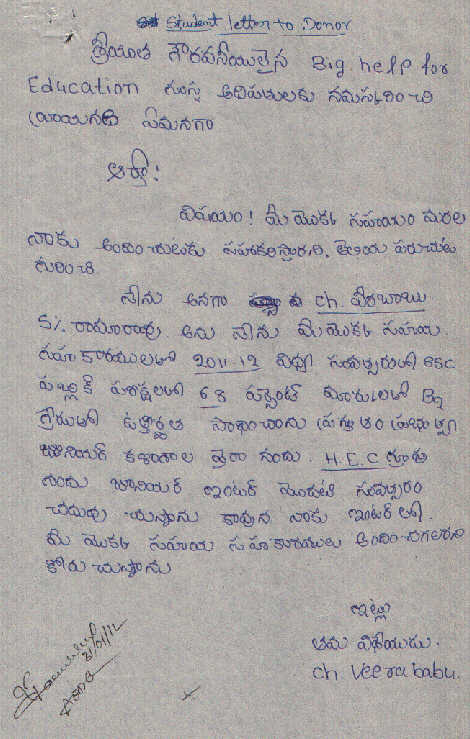 Student letter to Donor
శ్రీయుత గౌరవనీయులైన Big help for
Education సంస్థ అధిపతులకు నమస్కరించి
వ్రాయునది ఏమనగా
ఆర్యా!
విషయం! మీ యొక్క సహాయం మరల
నాకు అందించుటకు సహకరిస్తారని తెలియ పరుచుట
గురించి
నేను అనగా ch. వీరబాబు
S/. రామారావు అను నేను మీ యొక్క సహాయ
సహకారములతో 2011-12 విద్యా సంవత్సరంలో SSC
పబ్లిక్ పరీక్షలలో 68 పర్సెంట్ మార్కులతో B2
గ్రేడులో ఉత్తీర్ణత సాధించాను ప్రస్తుతం ప్రభుత్వ
జూనియర్ కళాశాల నందు. H.E.C గ్రూపు
నందు జూనియర్ ఇంటర్ మొదటి సంవత్సరం
చదువు చున్నాను కావున నాకు ఇంటర్ లో
మీ యొక్క సహాయ సహకారములు అందించగలరని
కోరు చున్నాను
ఇట్లు
తమ విధేయుడు.
ch Veerababu.